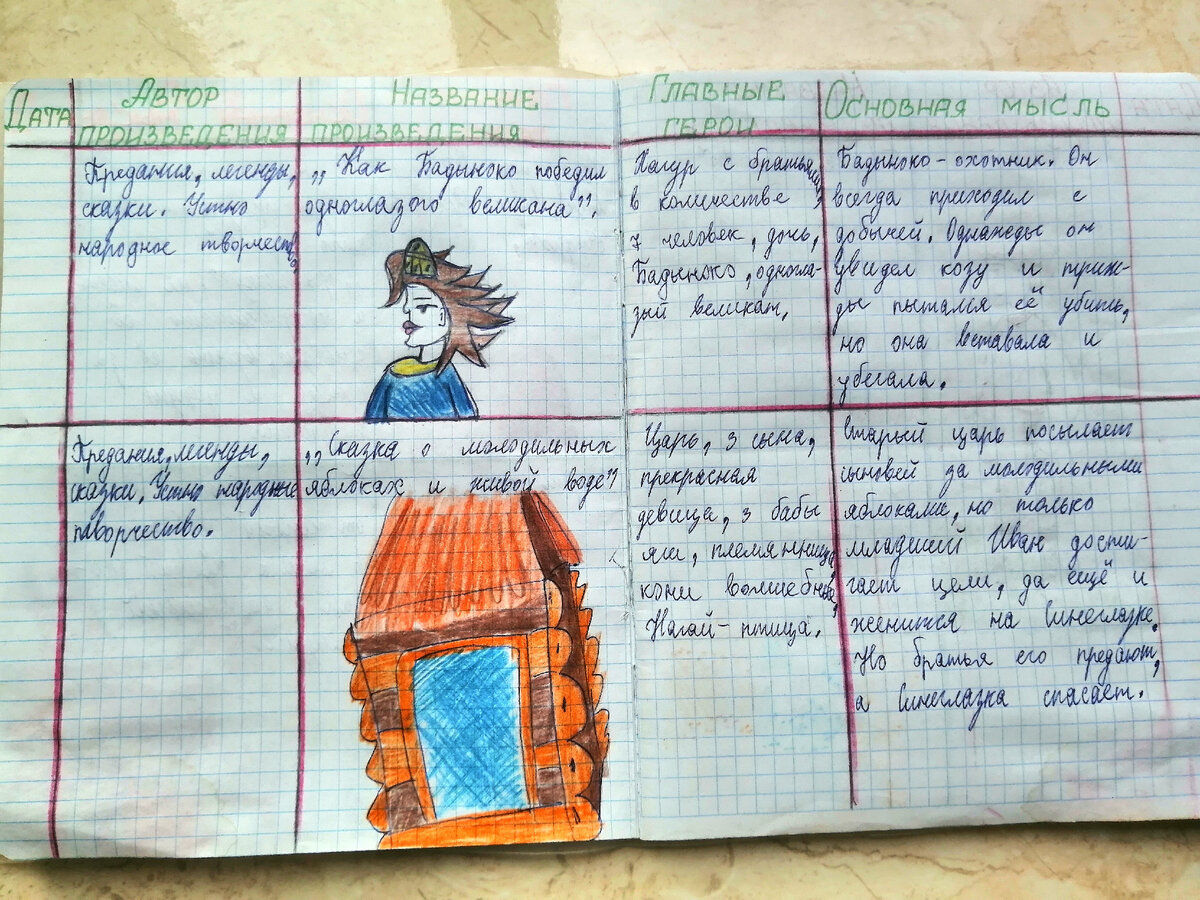 Дата
Автор
произведения
Название
произведения
Главные
герои
Основная мысль
Предания, легенды,
сказки. Устно
народное творчество.
„Как Бадыноко победил
одноглазого великана”.
с братьями
в количестве
7 человек, дочь,
Бадыноко, одногла-
зый великан.
Бадыноко-охотник. Он
всегда приходил с
добычей. Однажды он
увидел козу и триж-
ды пытался её убить,
но она вставала и
убегала.
Предания, легенды,
сказки. Устно народное
творчество.
„Сказка о молодильных
яблоках и живой воде”
Царь, 3 сына,
прекрасная
девица, 3 бабы
яги, племянница,
кони волшебные,
Нагай-птица.
Старый царь посылает
сыновей за молодильными
яблоками, но только
младший Иван дости-
гает цели, да ещё и
женится на Синеглазке.
Но братья его предают,
а Синеглазка спасает.